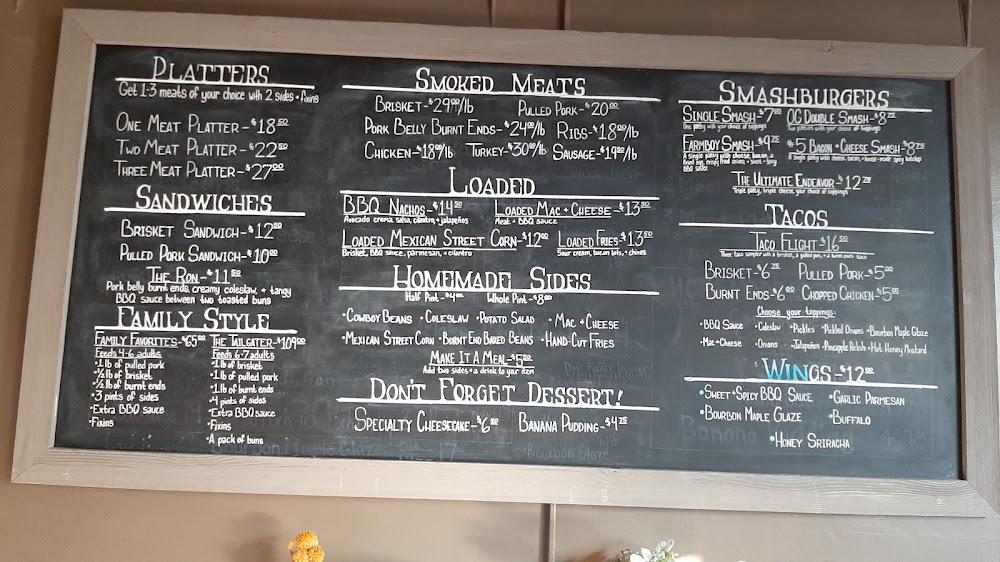 PLATTERS
Get 1-3 meats of your choice with 2 sides + fixins
ONE MEAT PLATTER - $18.50
TWO MEAT PLATTER - $22.50
THREE MEAT PLATTER - $27.00
SANDWICHES
BRISKET SANDWICH - $12.50
PULLED PORK SANDWICH - $10.00
THE RON - $11.50
Pork belly burnt ends, creamy coleslaw, + tangy
BBQ sauce between two toasted buns
FAMILY STYLE
FAMILY FAVORITES - $65.00
Feeds 4-6 adults
•1 lb of pulled pork
•½ lb of brisket
•½ lb of burnt ends
•3 pints of sides
•Extra BBQ sauce
•Fixins
THE TAILGATER - $109.00
Feeds 6-7 adults
•1 lb of brisket
•1 lb of pulled pork
•1 lb of burnt ends
•4 pints of sides
•Extra BBQ sauce
•Fixins
•A pack of buns
SMOKED MEATS
BRISKET - $29.99/lb PULLED PORK - $20.00
PORK BELLY BURNT ENDS - $24.00/lb RIBS - $18.00/lb
CHICKEN - $18.99/lb TURKEY - $30.99/lb SAUSAGE - $19.50/lb
LOADED
BBQ NACHOS - $14.50 LOADED MAC + CHEESE - $13.50
Avocado crema, salsa, cilantro, + jalapeños Meat + BBQ sauce
LOADED MEXICAN STREET CORN - $12.00 LOADED FRIES - $13.50
Brisket, BBQ sauce, parmesan, + cilantro Sour cream, bacon bits, + chives
HOMEMADE SIDES
Half Pint - $4.00 Whole Pint - $8.00
•COWBOY BEANS •COLESLAW •POTATO SALAD •MAC + CHEESE
•MEXICAN STREET CORN •BURNT END BAKED BEANS •HAND-CUT FRIES
MAKE IT A MEAL - $5.50
Add two sides + a drink to your item
DON'T FORGET DESSERT!
SPECIALTY CHEESECAKE - $6.00 BANANA PUDDING - $4.75
SMASHBURGERS
SINGLE SMASH - $7.00 OG DOUBLE SMASH - $8.75
One patty with your choice of toppings Two patties with your choice of toppings
FARMBOY SMASH - $9.75 #5 BACON + CHEESE SMASH - $8.75
A single patty with cheese, bacon, a
fried egg, crispy fried onions + sweet + spicy
BBQ sauce
A single patty with cheese, bacon, + house-made spicy ketchup
THE ULTIMATE ENDEAVOR - $12.75
Triple patty, triple cheese, your choice of toppings
TACOS
TACO FLIGHT - $16.50
Three taco sampler with a brisket, a pulled pork, + a burnt ends taco
BRISKET - $6.75 PULLED PORK - $5.00
BURNT ENDS - $6.00 CHOPPED CHICKEN - $5.00
Choose your toppings:
•BBQ Sauce •Coleslaw •Pickles •Pickled Onions •Bourbon Maple Glaze
•Mac + Cheese •Onions •Jalapeños •Pineapple Relish •Hot Honey Mustard
WINGS - $12.00
•SWEET + SPICY BBQ SAUCE •GARLIC PARMESAN
•BOURBON MAPLE GLAZE •BUFFALO
•HONEY SRIRACHA